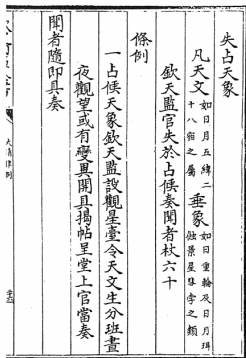 失占天象
凡天文如日月五緯二十八宿之屬垂象如日重輪及日月珥蝕景星彗孛之類
欽天監官失於占候奏聞者杖六十
條例
一占候天象欽天監設觀星臺令天文生分班晝
夜觀望或有變異開具揭帖呈堂上官當奏
聞者隨即具奏
大清律例